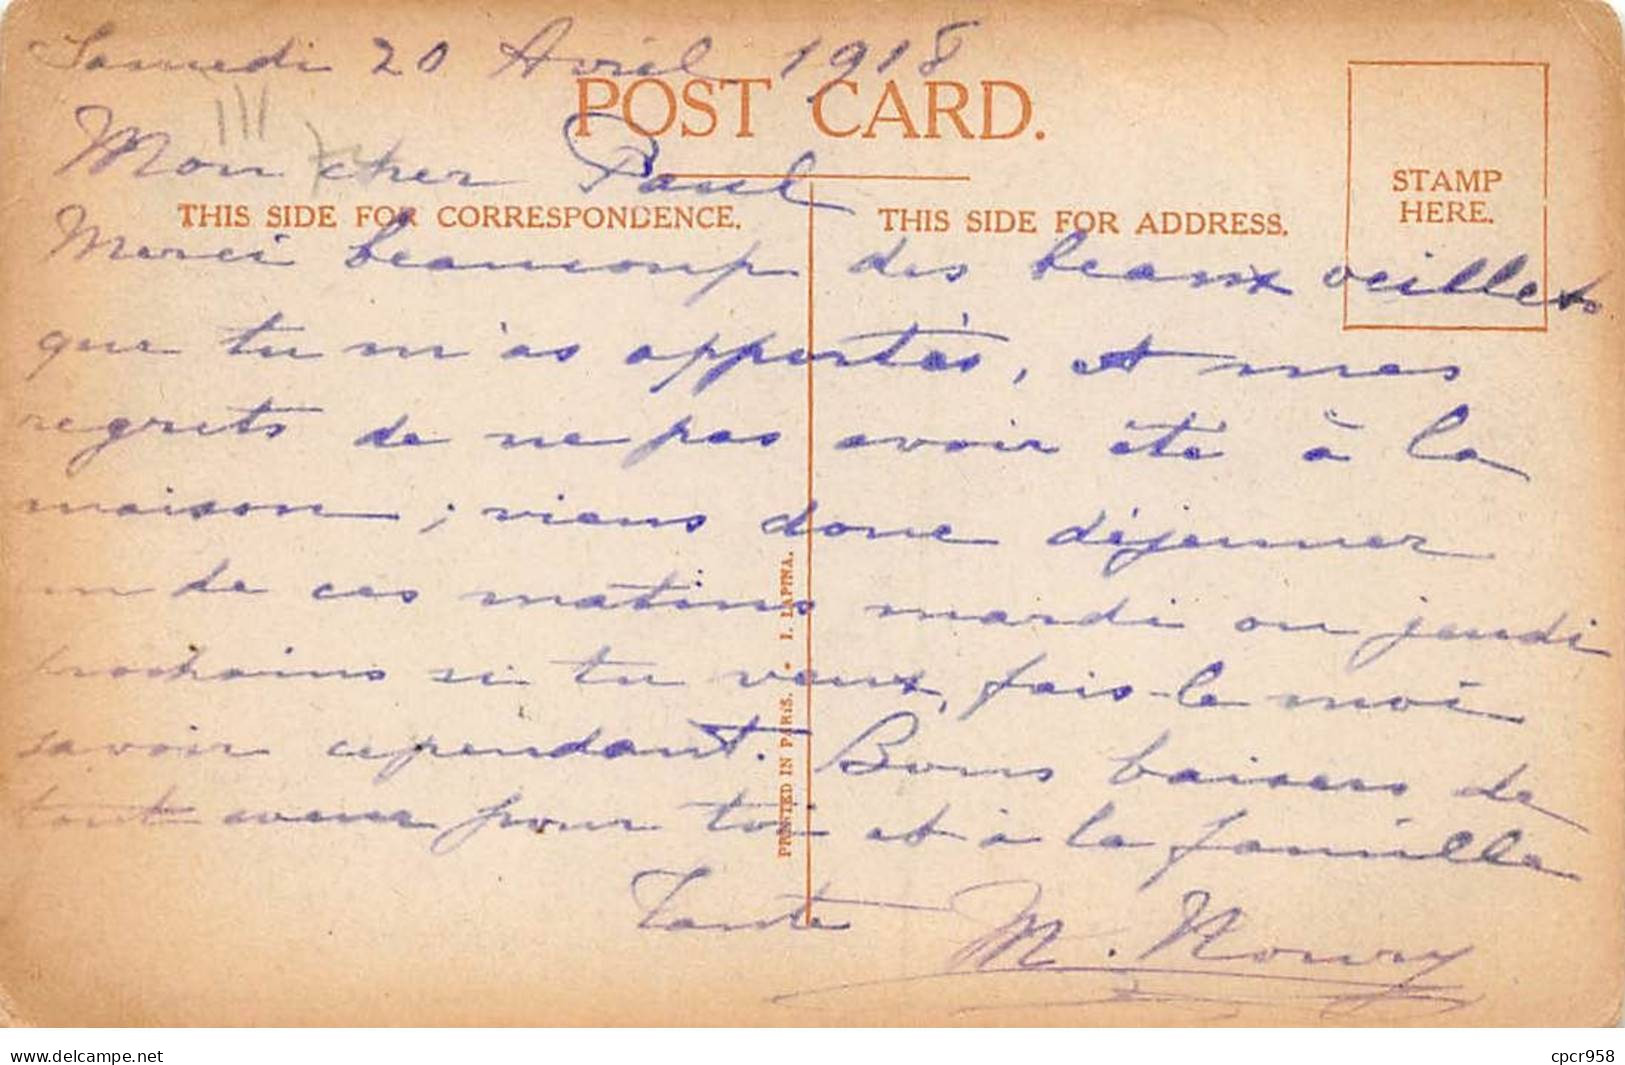 Samedi 20 Avril 1918
POST CARD.
Mon cher Paul
THIS SIDE FOR CORRESPONDENCE.
THIS SIDE FOR ADDRESS.
STAMP
HERE.
Merci beaucoup des beaux oeillets
que tu m'as apportés, et mes
regrets de ne pas avoir été à la
maison ; viens donc déjeuner
un de ces matins mardi ou jeudi
prochains si tu veux, fais-le moi
savoir cependant. Bons baisers de
tout coeur pour toi et à la famille
Tante M. Noury
PRINTED IN PARIS. • I. LAPINA.
www.delcampe.net
cpcr958